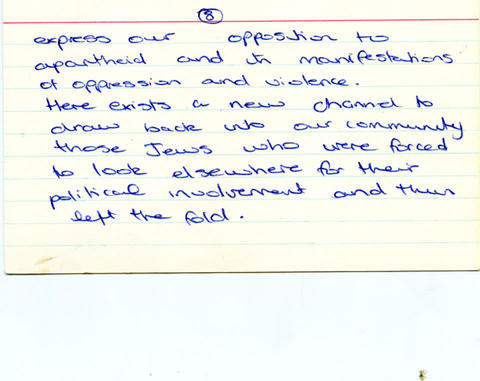 8
express our opposition to
apartheid and its manifestations
of oppression and violence.
Here exists a new channel to
draw back into our community
those Jews who were forced
to look elsewhere for their
political involvement and thus
left the fold.